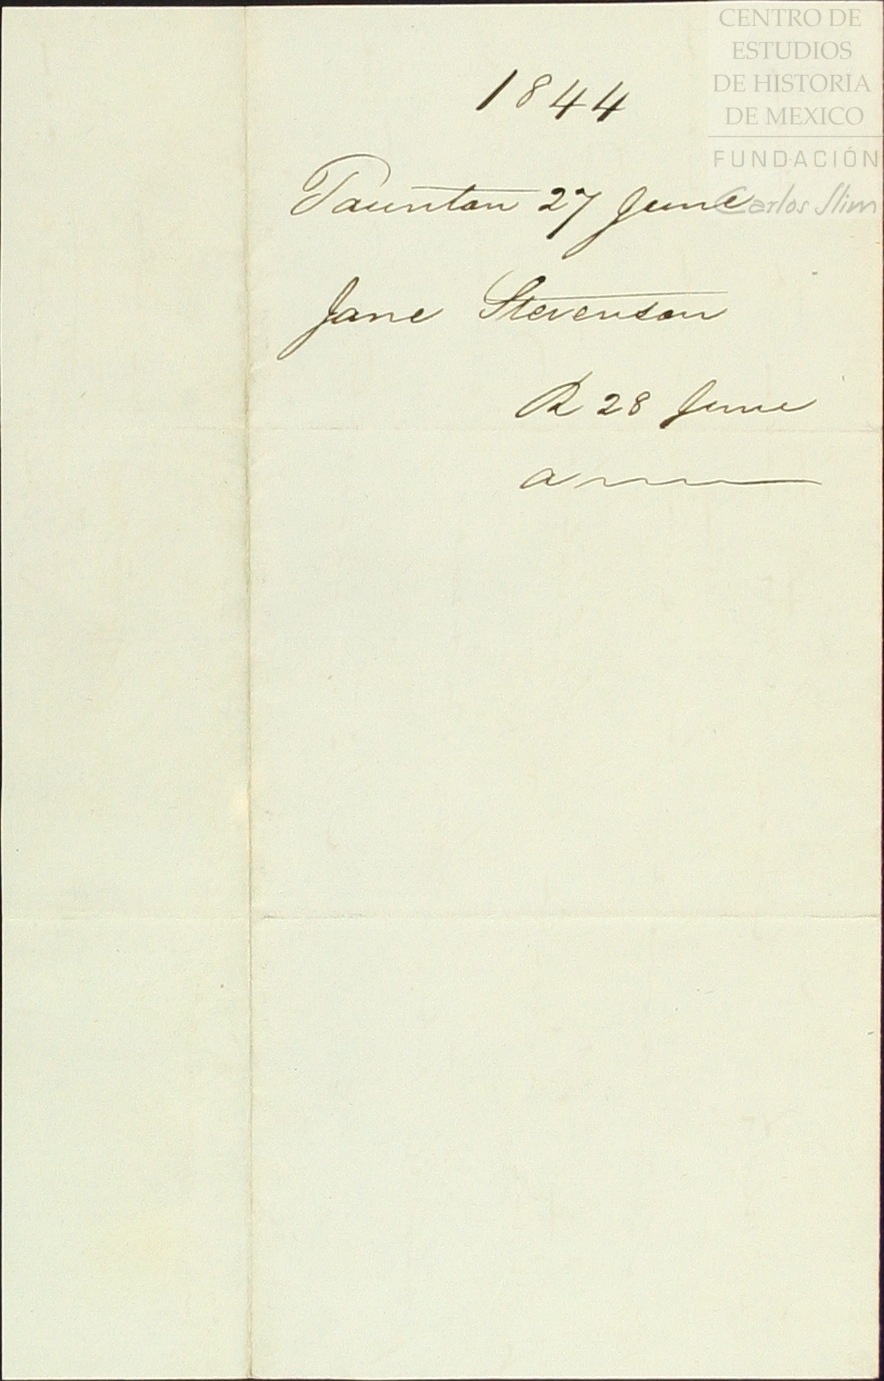 CENTRO DE
ESTUDIOS
DE HISTORIA
DE MEXICO
FUNDACIÓN
Carlos Slim
1844
Taunton 27 June
Jane Stevenson
R 28 June
a